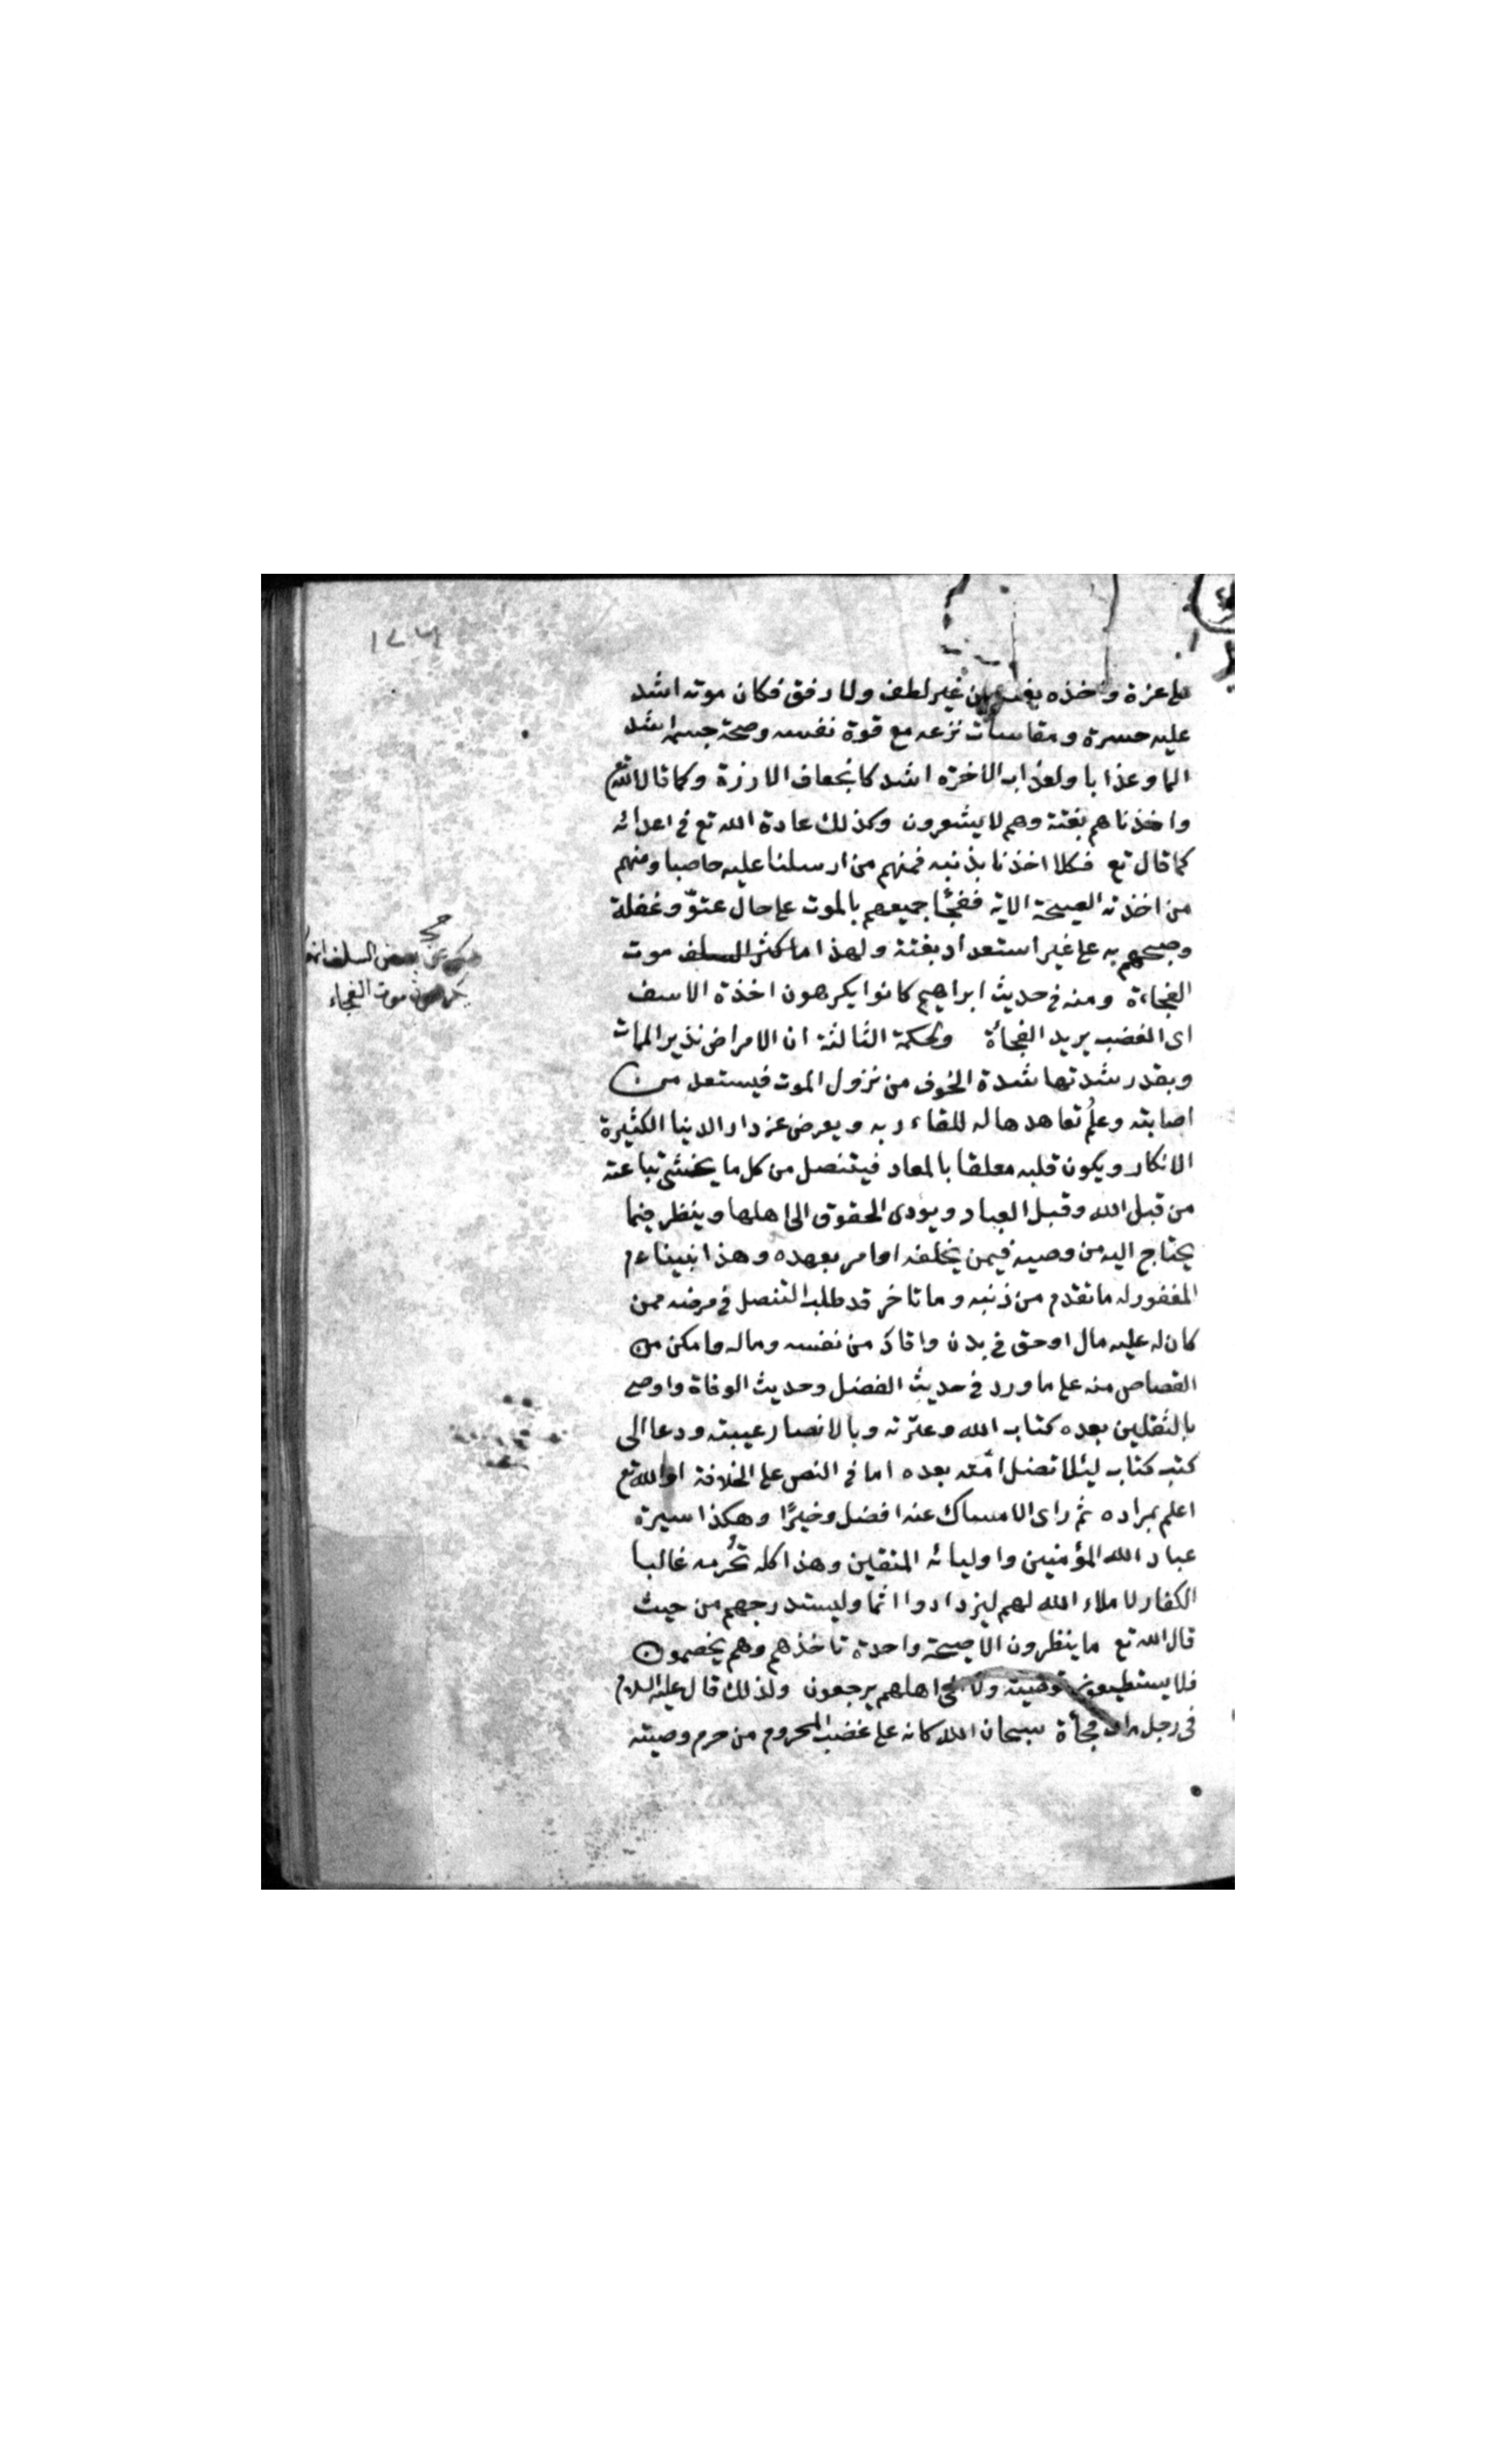 على غرة واخذه بغتة من غير لطف ولا رفق فكان موته اشد
عليه حسرة ومقاسات نزعه مع قوة نفسه وصحة جسمه اشد
الما وعذابا ولعذاب الاخرة اشد كانجعاف الارزة وكما قال الله تع
واخذناهم بغتة وهم لا يشعرون وكذلك عادة الله تع في اعدائه
كما قال تع فكلا اخذنا بذنبه فمنهم من ارسلنا عليه حاصبا ومنهم
من اخذته الصيحة الاية ففجأ جميعهم بالموت على حال عتوّ وغفلة
وصبحهم به على غير استعداد بغتة ولهذا ما موت
الفجاءة ومنه في حديث ابراهيم كانوا يكرهون اخذة الاسف
اى الغضب يريد الفجأة وحكمة الثالثة ان الامراض نذير الممات
وبقدر شدتها شدة الخوف من نزول الموت فيستعد من
اصابته وعلم تعاهدها له للقاء ربه ويعرض عن دار الدنيا الكثيرة
الانكار ويكون قلبه معلقا بالمعاد فيتنصل من كل ما يخشى تباعته
من قبل الله وقبل العباد ويؤدى الحقوق الى اهلها وينظر فيما
يحتاج اليه من وصية فيمن يخلفه او امر بعهده وهذا نبيناءم
المغفور له ما تقدم من ذنبه وما تاخر قد طلب التنصل في مرضه ممن
كان له عليه مال او حق في بدن واقاد من نفسه وماله وامكن من
القصاص منه على ما ورد في حديث الفضل وحديث الوفاة واوصى
بالثقلين بعده كتاب الله وعترته وبالانصار عيبته ودعا الى
كتب كتاب ليئلا تضل امّته بعده اما في النص على الخلافة او الله تع
اعلم بمراده ثم راى الامساك عنه افضل وخيرًا وهكذا سيرة
عباد الله المؤمنين واوليائه المتقين وهذا كله تحُرمه غالبا
الكفار لاملاء الله لهم ليزدادوا اثما وليستدرجهم من حيث
قال الله تع ما ينظرون الا صيحة واحدة تاخذهم وهم يخصمون
فلا يستطيعون توصية ولا الى اهلهم يرجعون ولذلك قال عليه السلام
في رجل مات فجأة سبحان الله كانه على غضب المحروم من حرم وصيته
عن بعض السلف
موت الفجاء